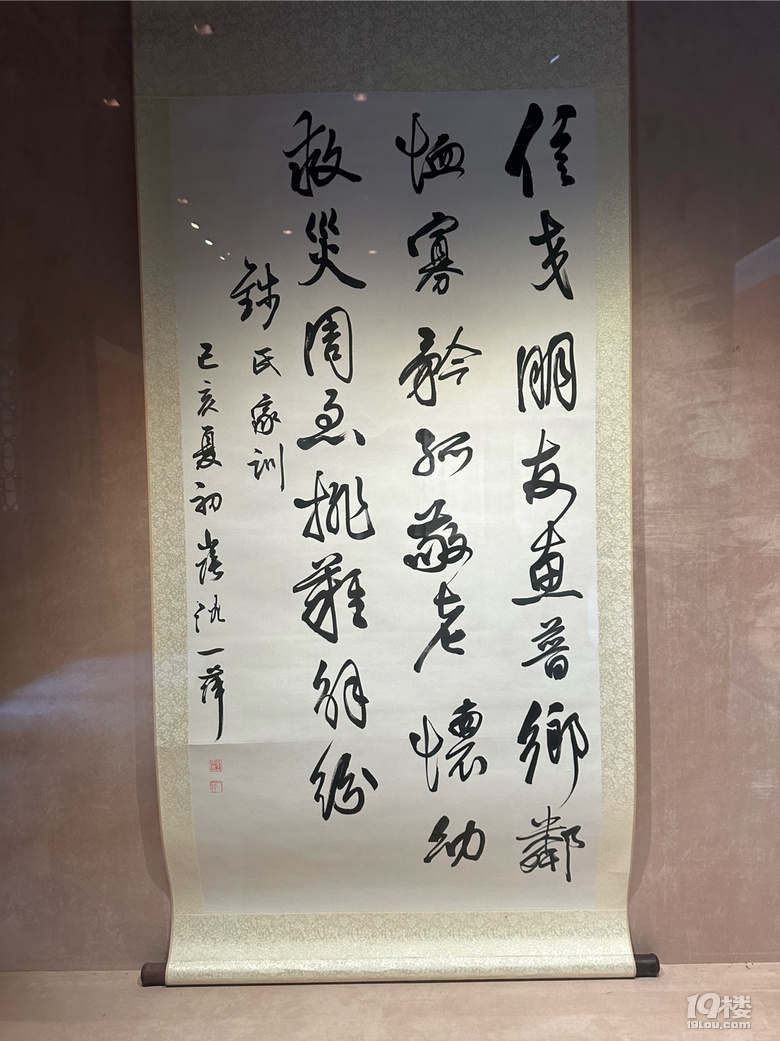 信交朋友惠普鄉鄰
恤寡矜孤敬老懷幼
救災周急排難解紛
錢氏家訓
己亥夏初沈一
19楼
19lou.com